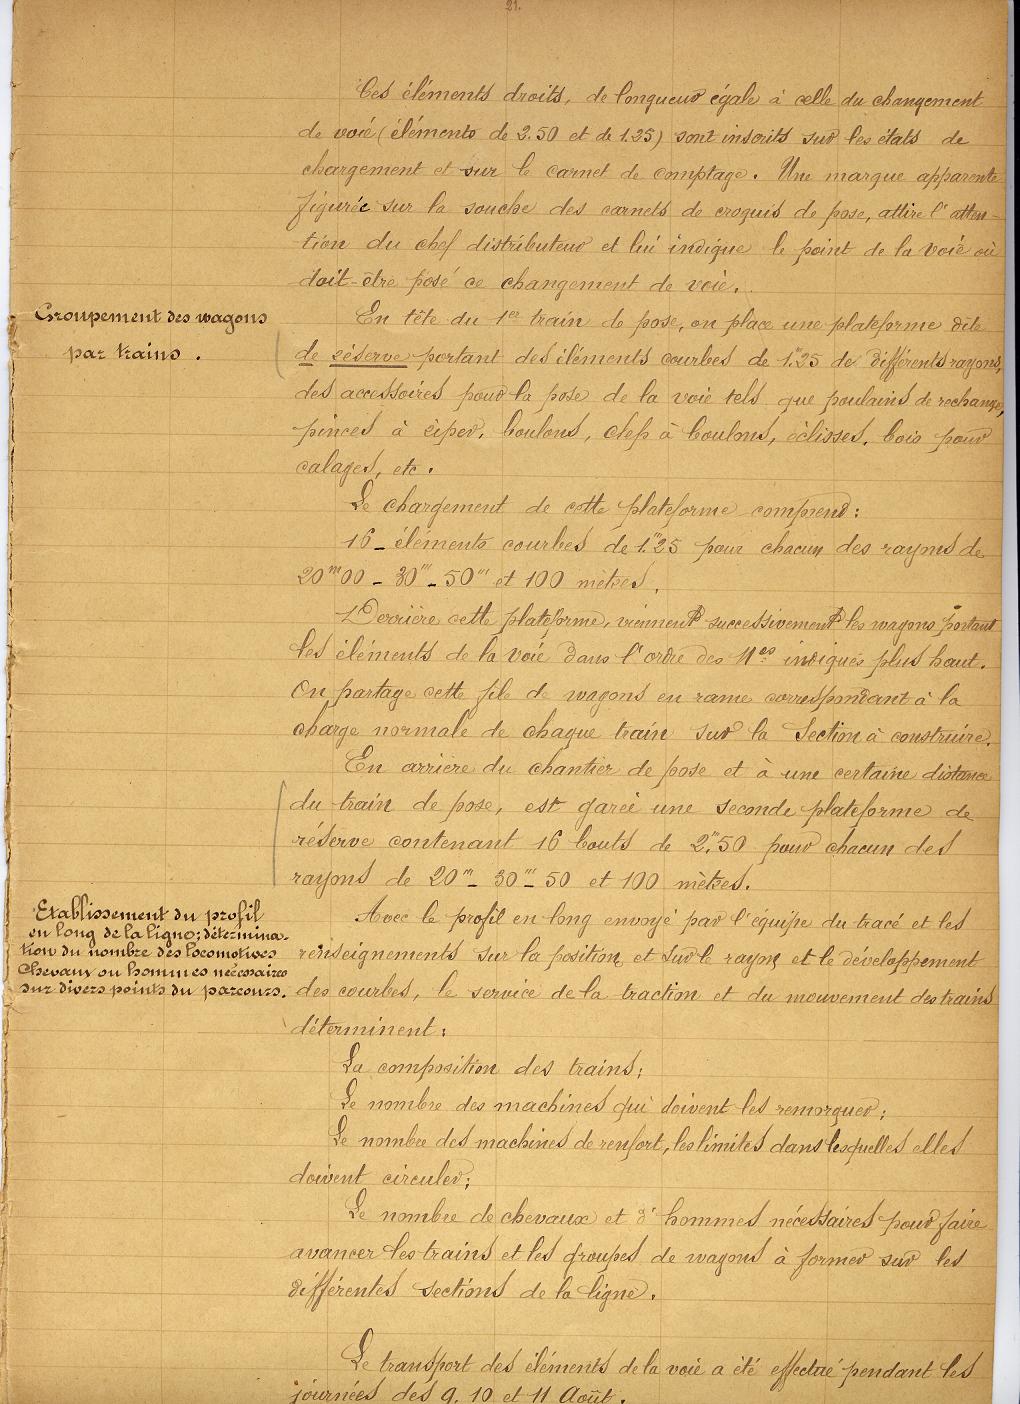 21.
Ces éléments droits, de longueur égale à celle du changement
de voie (éléments de 2.50 et de 1.25) sont inscrits sur les états de
chargement et sur le carnet de comptage. Une marque apparente
figurée sur la souche des carnets de croquis de pose, attire l'atten-
tion du chef distributeur et lui indique le point de la voie où
doit-être posé ce changement de voie.
Groupement des wagons
par trains.
En tête du 1er train de pose, on place une plateforme dite
de réserve portant des éléments courbes de 1m25 de différents rayons,
des accessoires pour la pose de la voie tels que poulains de rechange,
pinces à riper, boulons, clefs à boulons, éclisses, bois pour
calages, etc.
Le chargement de cette plateforme comprend:
16 - éléments courbes de 1m25 pour chacun des rayons de
20m00 - 30m - 50m et 100 mètres.
Derrière cette plateforme, viennent successivement les wagons portant
les éléments de la voie dans l'ordre des Nos indiqués plus haut.
On partage cette file de wagons en rame correspondant à la
charge normale de chaque train sur la Section à construire.
En arrière du chantier de pose et à une certaine distance
du train de pose, est garée une seconde plateforme de
réserve contenant 16 bouts de 2m50 pour chacun des
rayons de 20m - 30m - 50 et 100 mètres.
Etablissement du profil
en long de la ligne; détermina-
tion du nombre des locomotives
chevaux ou hommes nécessaires
sur divers points du parcours.
Avec le profil en long envoyé par l'équipe du tracé et les
renseignements sur la position et sur le rayon et le développement
des courbes, le service de la traction et du mouvement des trains
déterminent:
La composition des trains;
Le nombre des machines qui doivent les remorquer;
Le nombre des machines de renfort, les limites dans lesquelles elles
doivent circuler;
Le nombre de chevaux et d'hommes nécessaires pour faire
avancer les trains et les groupes de wagons à former sur les
différentes sections de la ligne.
Le transport des éléments de la voie a été effectué pendant les
journées des 9, 10 et 11 Août.